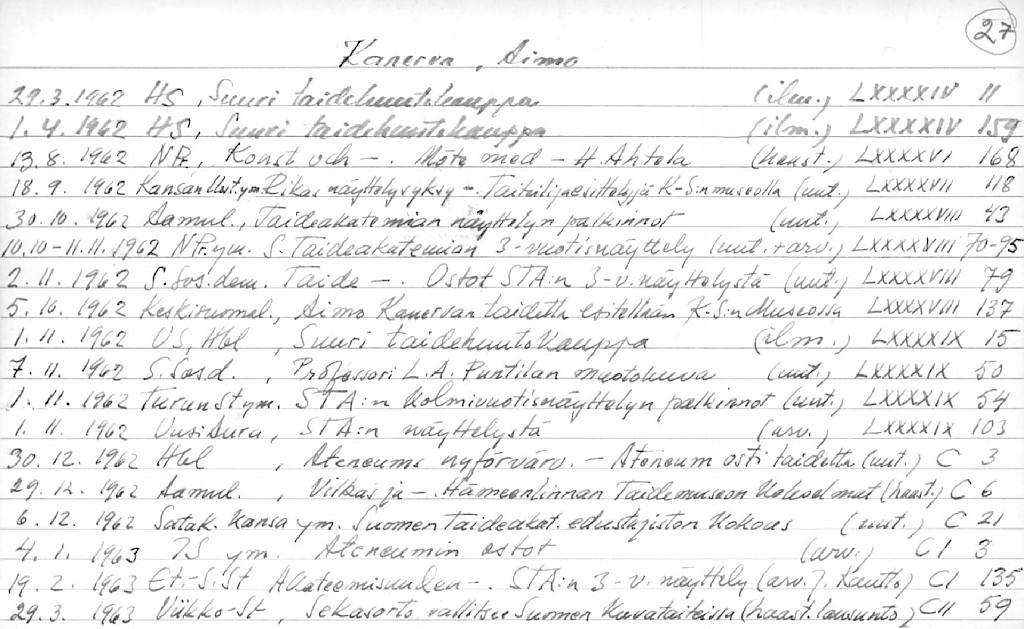 27
Kanerva, Aimo
29.3.1962 HS, Suuri taidehuutokauppa (ilm.) LXXXXIV 11
1.4.1962 HS, Suuri taidehuutokauppa (ilm.) LXXXXIV 159
13.8.1962 NPr., Konst och -. Möte med - H. Ahtela (haast.) LXXXXVI 168
18.9.1962 Kansan Uut. ym. Rikas näyttelysyksy -. Taiteilijaesittelyjä K-S:n museolla (uut.) LXXXXVII 118
30.10.1962 Aamul., Taideakatemian näyttelyn palkinnot (uut.) LXXXXVIII 43
10.10-11.11.1962 NPr. ym. S. Taideakatemian 3-vuotisnäyttely (uut. + arv.) LXXXXVIII 70-95
2.11.1962 S. Sos.dem. Taide -. Ostot STA:n 3-v. näyttelystä (uut.) LXXXXVIII 79
5.10.1962 Keskisuomal., Aimo Kanervan taidetta esitellään K-S:n Museossa LXXXXVIII 137
1.11.1962 US, Hbl, Suuri taidehuutokauppa (ilm.) LXXXXIX 15
7.11.1962 S. Sosd., Professori L.A. Puntilan muotokuva (uut.) LXXXXIX 50
1.11.1962 TurunSt ym. STA:n kolmivuotisnäyttelyn palkinnot (uut.) LXXXXIX 54
1.11.1962 Uusi Aura, STA:n näyttelystä (arv.) LXXXXIX 103
30.12.1962 Hbl, Ateneums nyförvärv. - Ateneum osti taidetta (uut.) C 3
29.12.1962 Aamul., Vilkas ja -. Hämeenlinnan Taidemuseon kokoelmat (haast.) C 6
6.12.1962 Satak. Kansa ym. Suomen Taideakat. edustajiston kokous (uut.) C 21
4.1.1963 TS ym. Ateneumin ostot (arv.) CI 3
19.2.1963 Et.-S. St Akateemisuuden -. STA:n 3-v. näyttely (arv. J. Kautto) CI 135
29.3.1963 Viikko-St, Sekasorto vallitsee Suomen kuvataiteissa (haast. lausunto) CII 59